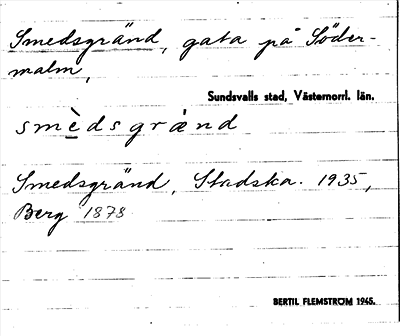 Smedsgränd, gata på Söder-
malm,
Sundsvalls stad, Västernorrl. län.
smèdsgränd
Smedsgränd, Stadska. 1935,
Berg 1878
BERTIL FLEMSTRÖM 1945.